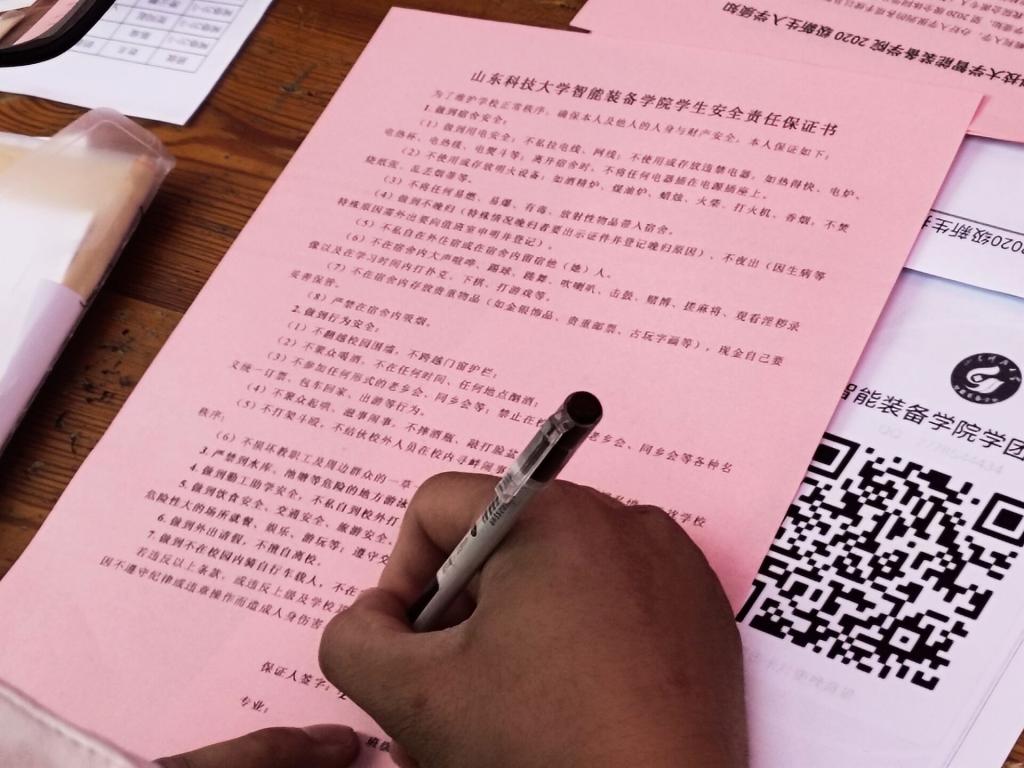 山东科技大学智能装备学院学生安全责任保证书
为了维护学校正常秩序，确保本人及他人的人身与财产安全，本人保证如下：
1.做到宿舍安全：
（1）做到用电安全：不私拉电线、网线；不使用或存放违禁电器，如热得快、电炉、
电热杯、电热毯、电熨斗等；离开宿舍时，不将任何电器插在电源插座上。
（2）不使用或存放明火设备：如酒精炉、煤油炉、蜡烛、火柴、打火机、香烟，不焚
烧纸张、乱丢烟蒂等。
（3）不将任何易燃、易爆、有毒、放射性物品带入宿舍。
（4）做到不晚归（特殊情况晚归者要出示证件并登记晚归原因）、不夜出（因生病等
特殊原因需外出要向值班室申明并登记）。
（5）不私自在外住宿或在宿舍内留宿他（她）人。
（6）不在宿舍内大声喧哗、踢球、跳舞、吹喇叭、击鼓、赌博、搓麻将、观看淫秽录
像以及在学习时间内打扑克、下棋、打游戏等。
（7）不在宿舍内存放贵重物品（如金银饰品、贵重邮票、古玩字画等），现金自己要
妥善保管。
（8）严禁在宿舍内吸烟。
2.做到行为安全：
（1）不翻越校园围墙，不跨越门窗护栏；
（2）不聚众喝酒，不在任何时间、任何地点酗酒；
（3）不参加任何形式的老乡会、同乡会等；禁止在 老乡会、同乡会等各种名
义统一订票、包车回家、出游等行为。
（4）不聚众起哄、滋事闹事，不摔酒瓶、敲打脸盆
（5）不打架斗殴，不给伙校外人员在校内寻衅闹事 学校
秩序；
（6）不损坏教职工及周边群众的一草
3.严禁到水库、池塘等危险的地方游泳
4.做到勤工助学安全，不私自到校外打
5.做到饮食安全、交通安全、旅游安全，
危险性大的场所就餐、娱乐、游玩等；遵守交
6.做到外出请假，不擅自离校。
7.做到不在校园内骑自行车载人，不在
若违反以上条款，或违反上级及学校
因不遵守纪律或违章操作而造成人身伤害
保证人签字：
专业：
班级
技大学智能装备学院 2020 级新生入学须知
2020级新生
智能装备学院学团